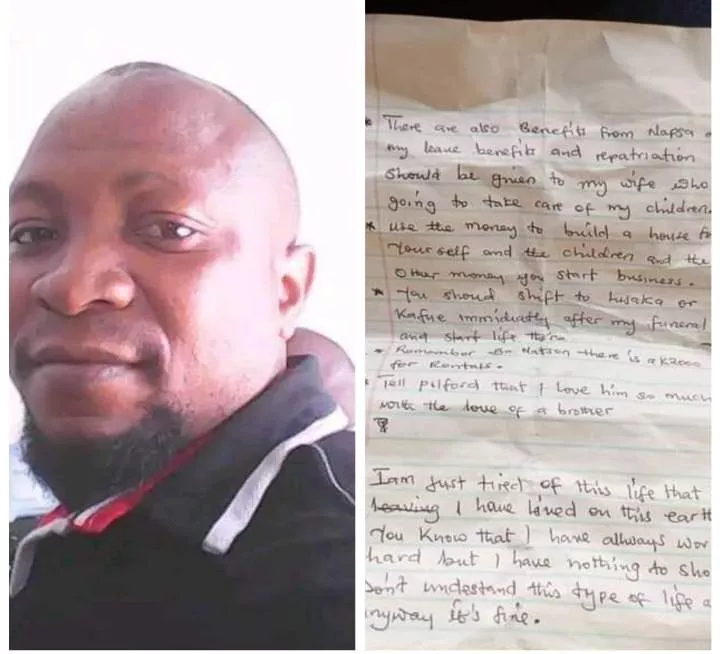 * There are also Benefits from Napsa
my leave benefits and repatriation
should be given to my wife who
going to take care of my children.
* use the money to build a house
Your self and the children and the
Other money you start business.
* You shoud shift to Lusaka or
Kafue immidiatly after my funeral
and start life there
* Remember Natson there is a K2000
for Rentals.
Tell pilford that I love him so much
with the love of a brother
I am just tired of this life that
leaving I have lived on this earth
You Know that I have allways wor
hard but I have nothing to sho
Don't undestand this type of life a
anyway it's fine.